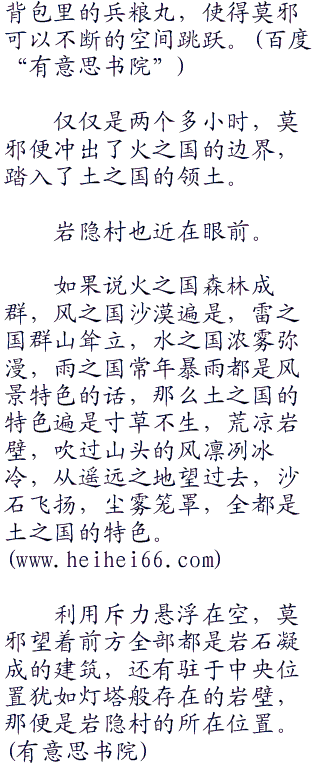 背包里的兵粮丸，使得莫邪
可以不断的空间跳跃。(百度
“有意思书院”)
仅仅是两个多小时，莫
邪便冲出了火之国的边界，
踏入了土之国的领土。
岩隐村也近在眼前。
如果说火之国森林成
群，风之国沙漠遍是，雷之
国群山耸立，水之国浓雾弥
漫，雨之国常年暴雨都是风
景特色的话，那么土之国的
特色遍是寸草不生，荒凉岩
壁，吹过山头的风凛冽冰
冷，从遥远之地望过去，沙
石飞扬，尘雾笼罩，全都是
土之国的特色。
(www.heihei66.com)
利用斥力悬浮在空，莫
邪望着前方全部都是岩石凝
成的建筑，还有驻于中央位
置犹如灯塔般存在的岩壁，
那便是岩隐村的所在位置。
(有意思书院)